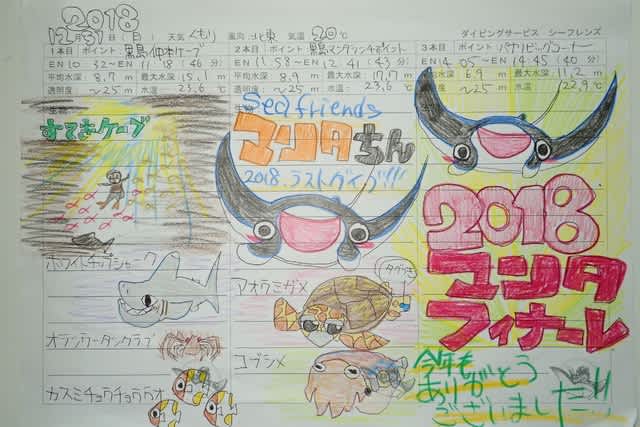 2018
12月31日(月) 天気 くもり 風向 北東 気温 20℃ ダイビングサービス シーフレンズ
1本目 ポイント 黒島仲本ケーブ
EN 10:32〜EN 11:18 (46分)
平均水深: 8.7 m 最大水深: 15.1 m
透明度 〜25m 水温: 23.6℃
2本目 ポイント 黒島マンタランチポイント
EN 11:58〜EN 12:41 (43分)
平均水深: 8.9 m 最大水深: 17.7 m
透明度 〜25m 水温: 23.6℃
3本目 ポイント パナリビッグコーナー
EN 14:05〜EN 14:45 (40分)
平均水深: 6.9 m 最大水深: 11.2 m
透明度 〜25m 水温: 22.9℃
すてきケーブ
ホワイトチップシャーク
オランウータンクラブ
カスミチョウチョウウオ
Seafriends
マンタちん
2018.ラストダイブ!!!!
アオウミガメ
コブシメ
2018
マンタ
フィナーレ
今年も
ありがとう
ございました!!